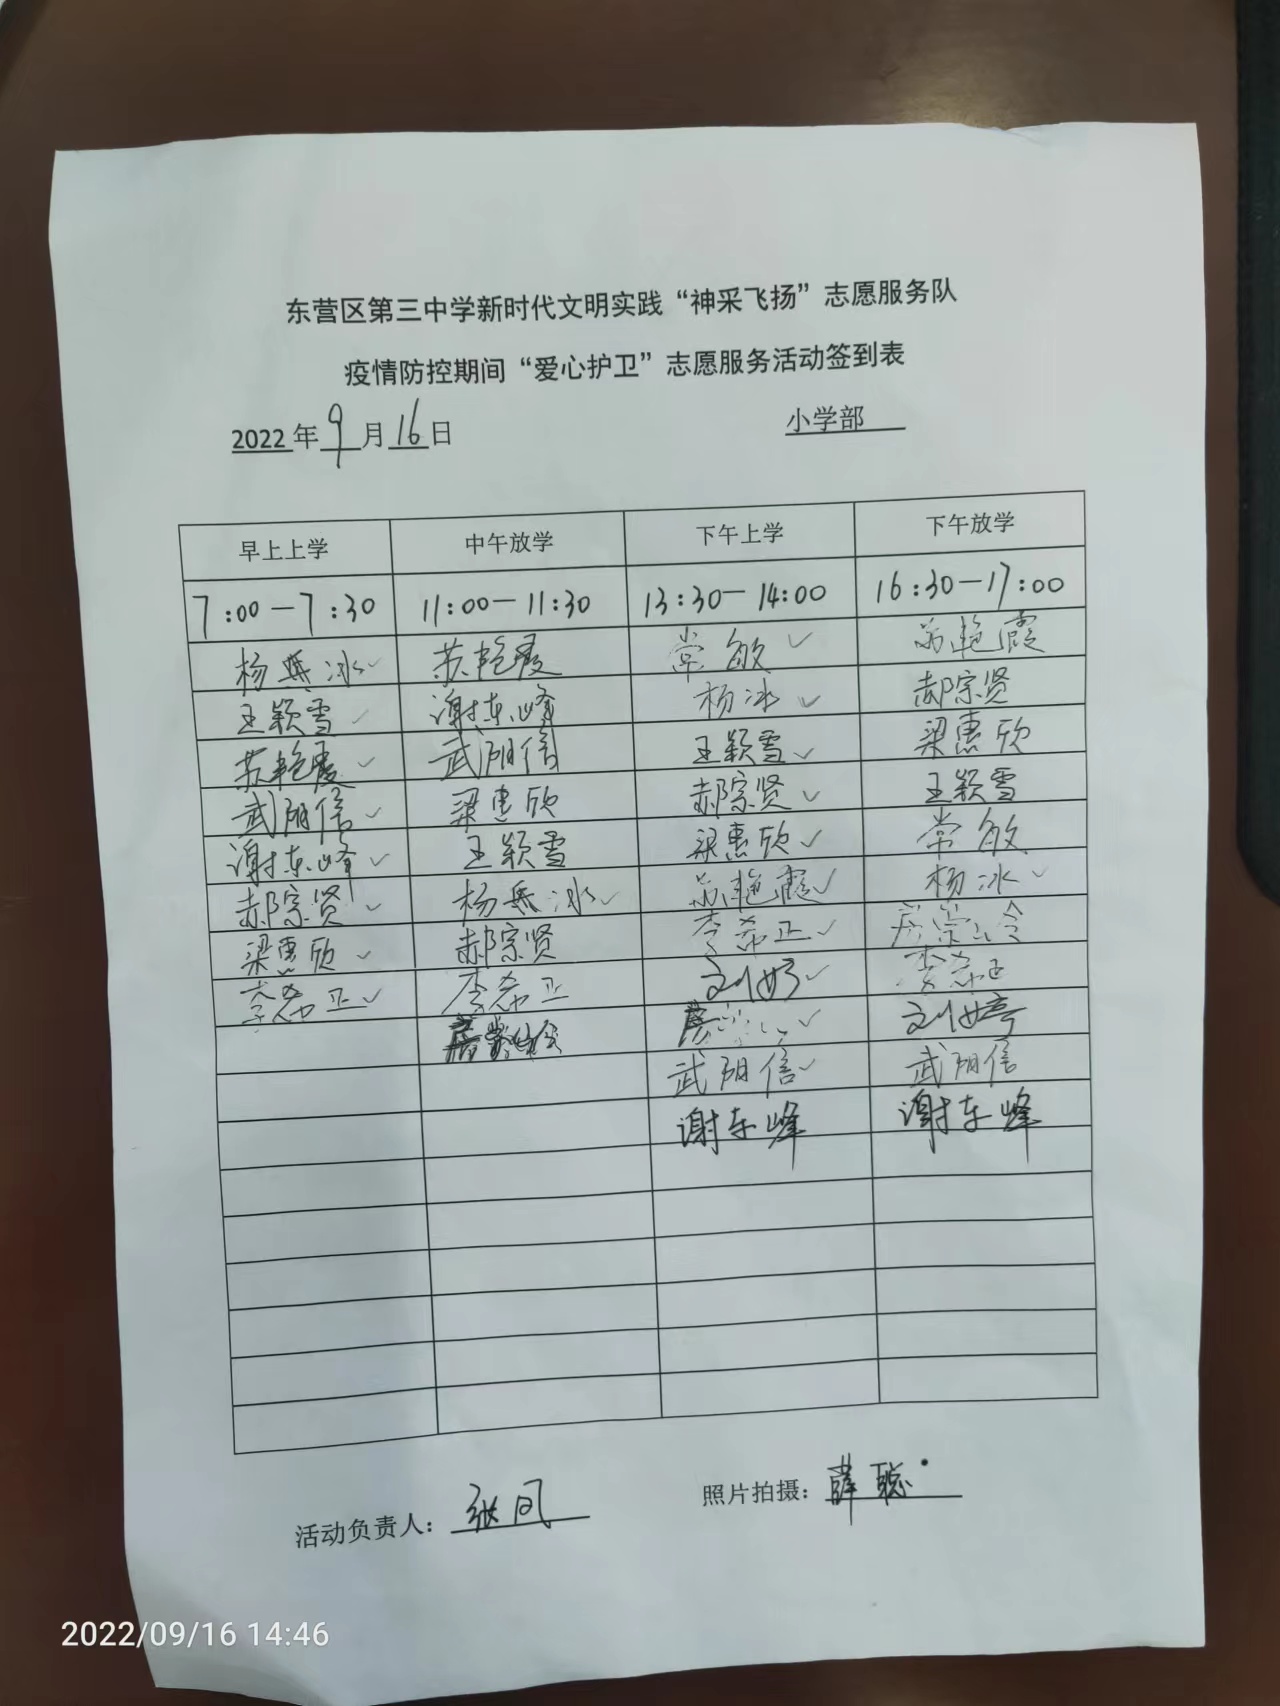 东营区第三中学新时代文明实践“神采飞扬”志愿服务队
疫情防控期间“爱心护卫”志愿服务活动签到表
2022年9月16日 小学部
早上上学 中午放学 下午上学 下午放学
7:00-7:30 11:00-11:30 13:30-14:00 16:30-17:00
杨 冰 苏艳霞 常敏 苏艳霞
王颖雪 谢东峰 杨冰 郝宗贤
苏艳霞 武阴信 王颖雪 梁惠欣
武阴信 梁惠欣 郝宗贤 王颖雪
谢东峰 王颖雪 梁惠欣 常敏
郝宗贤 杨 冰 苏艳霞 杨冰
梁惠欣 郝宗贤 李希正
李希正 李希正 刘婷 李希正
刘婷
武阴信 武阴信
谢东峰 谢东峰
活动负责人：张凤 照片拍摄：薛聪
2022/09/16 14:46